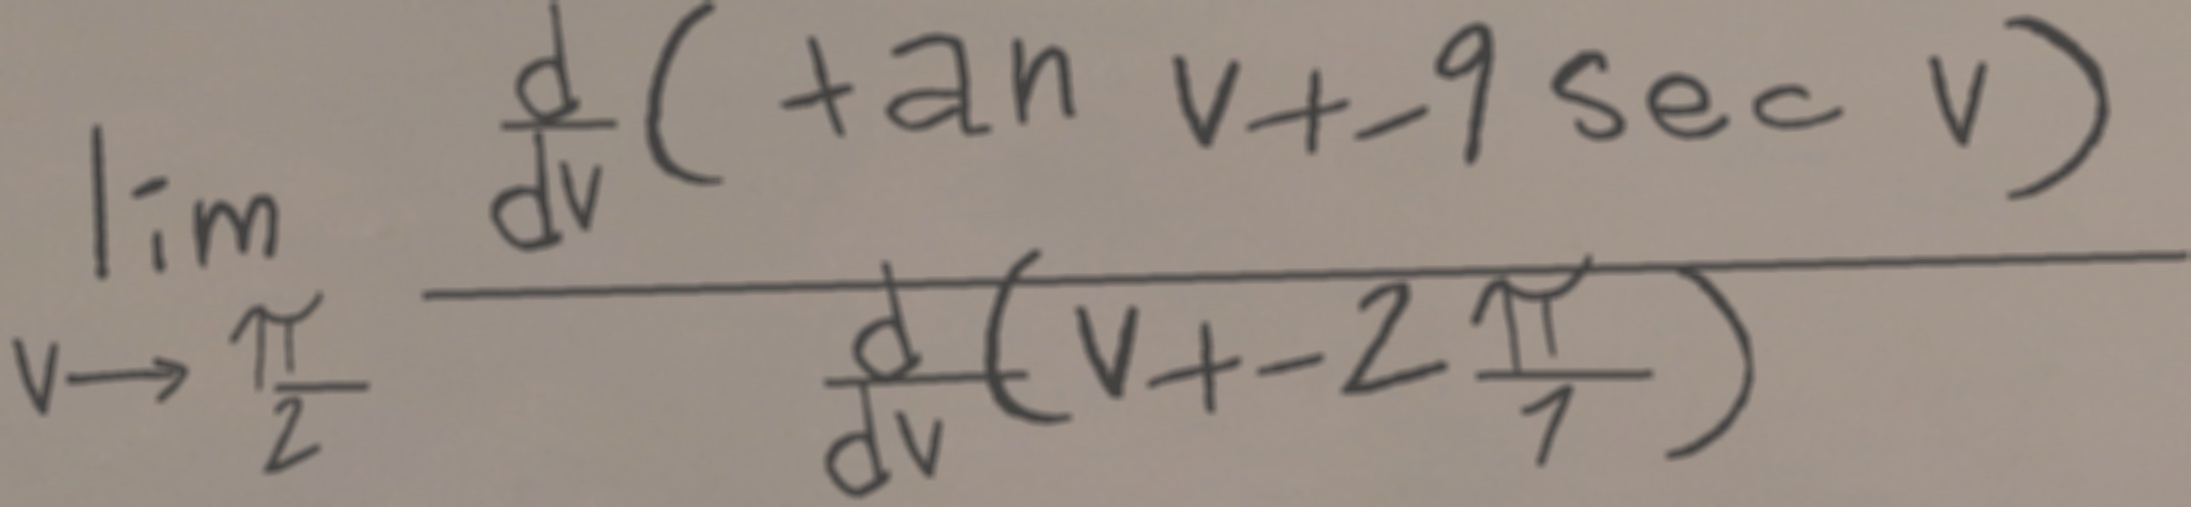 \lim_{v \to \frac{\pi}{2}} \frac{\frac{d}{dv}(\tan v + -9 \sec v)}{\frac{d}{dv}(v + -2 \frac{\pi}{1})}